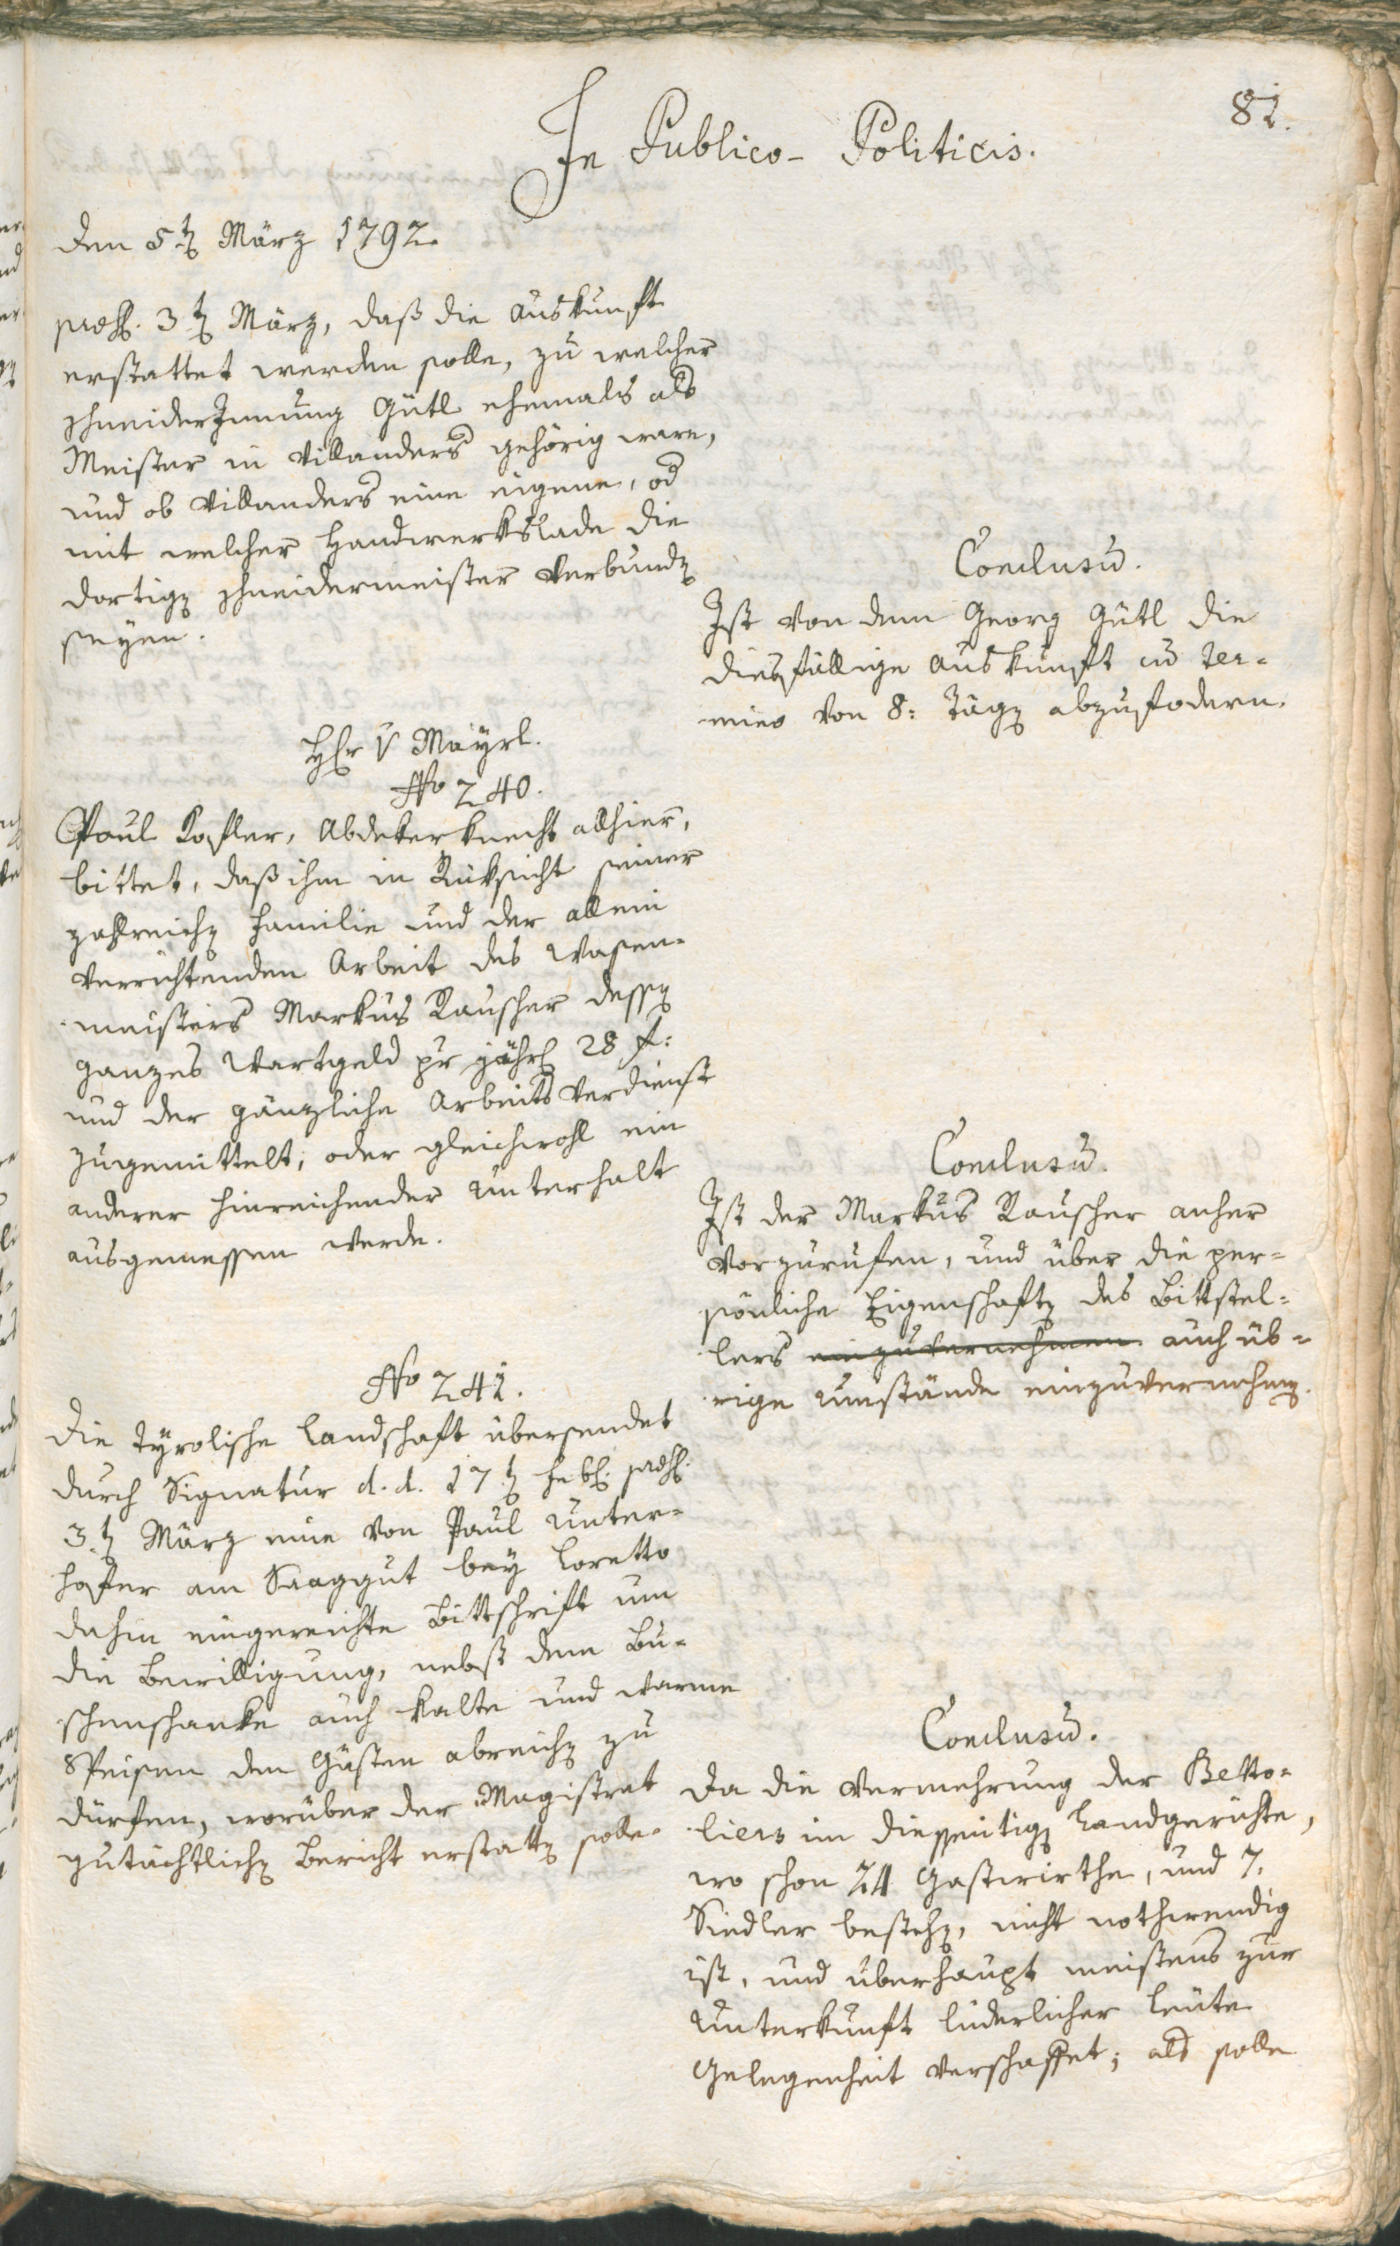 81.
In Publico-Politicis.
den 5ten März 1792.
praes. 3ten März, daß die Auskunft
erstattet werden solle, zu welcher
Schneiderzunung Gütl ehemals als
Meister in Villanders gehörig ware,
und ob Villanders eine eigene, od
mit welcher Handwerkslade die
dortigen Schneidermeister verbunden
seyen.
Conclusum.
Ist von dem Georg Gütl die
diesfällige Auskunft cum ter-
mino von 8: Tägen abzufodern.
Hr v Mayrl.
No 240.
Paul Kofler, Abdekerknecht allhier,
bittet, daß ihm in Rüksicht seiner
zahlreichen Familie und der allein
verrichtenden Arbeit des Wasen-
meisters Markus Rauscher dessen
ganzes Wartgeld pr jährl 28 f:
und der gänzliche Arbeits Verdienst
zugemittelt, oder gleichwohl ein
anderer hinreichender Unterhalt
ausgemessen werde.
Conclusum.
Ist der Markus Rauscher anher
vorzurufen, und über die per-
sönliche Eigenschaften des Bittstel-
lers einzuvernehmen auch üb-
rige Umstände einzuvernehmen.
No 241.
Die Tyrolische Landschaft übersendet
durch Signatur d. d. 17ten Febr. praes.
3ten März eine von Paul Unter-
hofer am Saaggut bey Loretto
dahin eingereichte Bittschrift um
die Bewilligung, nebst dem Bu-
schenschanke auch kalte und warme
Speisen den Gästen abreichen zu
dürfen, worüber der Magistrat
gutächtlichen Bericht erstatten solle.
Conclusum.
Da die Vermehrung der Betto-
liers im diesseitigen Landgerichte,
wo schon 24 Gastwirthe, und 7.
Siedler bestehen, nicht nothwendig
ist, und überhaupt meistens zur
Unterkunft liederlicher Leute
Gelegenheit verschaffet; als solle